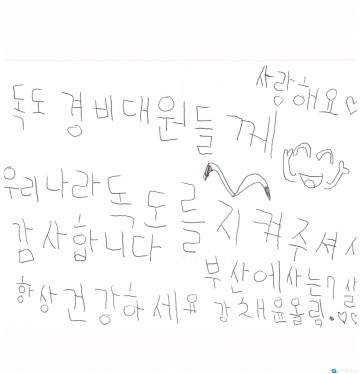 사랑해요♡
독도 경비대원들께
우리나라 독도를 지켜주셔서
감사합니다
부산에 사는 7살
항상 건강하세요 강채윤올림.♡♡